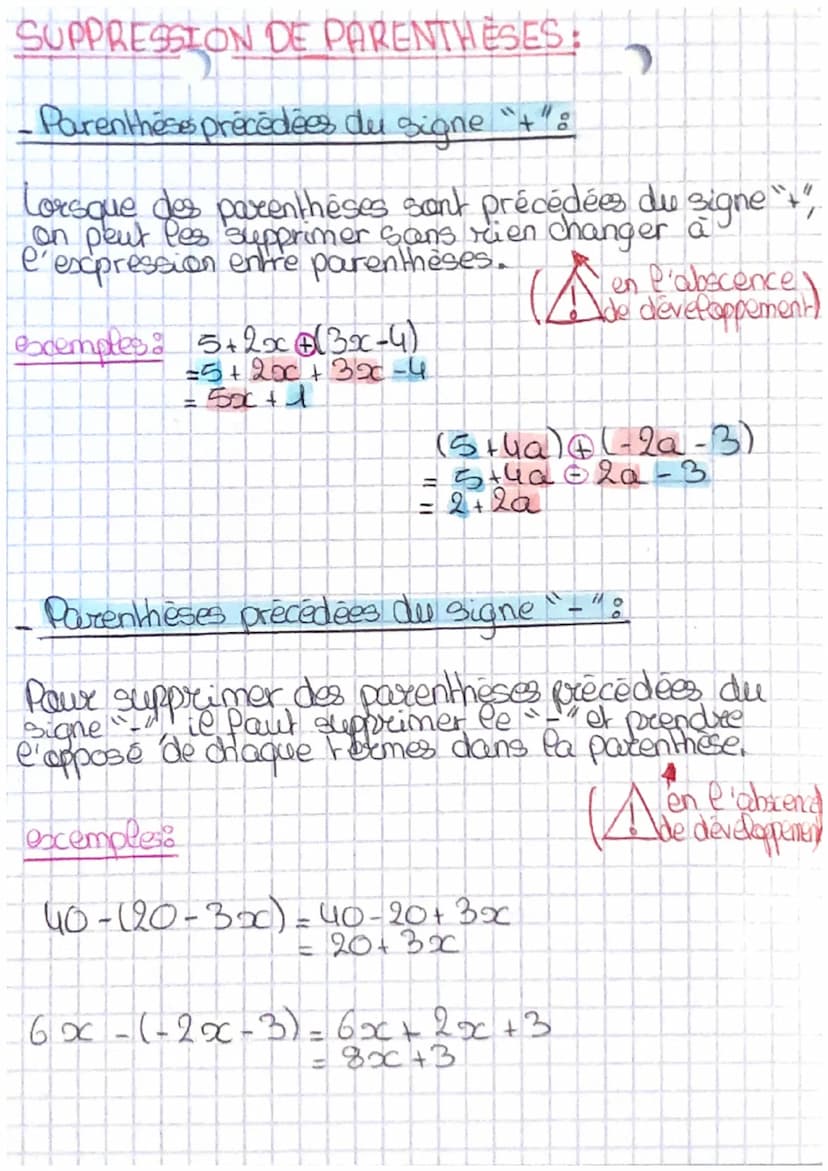 SUPPRESSION DE PARENTHÈSES :
- Parenthèses précédées du signe "+" :
Lorsque des parenthèses sont précédées du signe "+",
on peut les supprimer sans rien changer à
l'expression entre parenthèses.
(⚠ en l'abscence
de développement)
exemples : 5+2x+(3x-4)
=5+2x+3x-4
= 5x+1
(5+4a)+(-2a-3)
= 5+4a-2a-3
= 2+2a
- Parenthèses précédées du signe "-" :
Pour supprimer des parenthèses précédées du
signe "-", il faut supprimer le "-" et prendre
l'opposé de chaque termes dans la parenthèse.
(⚠ en l'abscenc
de développement
exemples :
40-(20-3x) = 40-20+3x
= 20+3x
6x-(-2x-3) = 6x+2x+3
= 8x+3